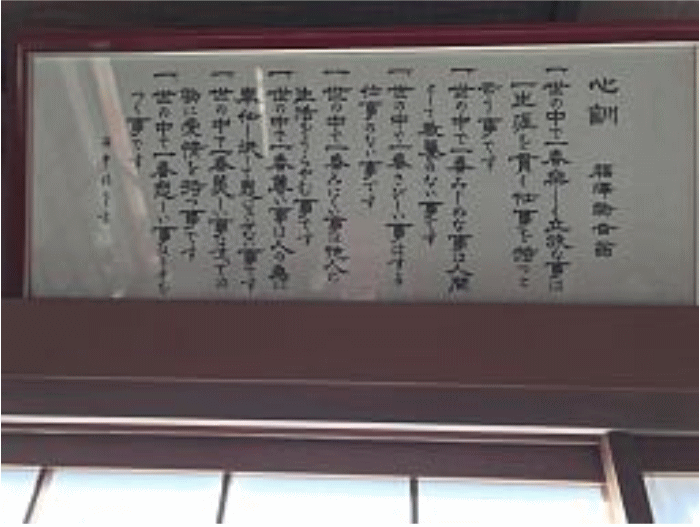 心訓 福澤諭吉翁
一世の中で一番楽しく立派な事は
一生涯を貫く仕事を持つと
云う事です
一世の中で一番みじめな事は人間
として教養のない事です
一世の中で一番さびしい事はする
仕事のない事です
一世の中で一番みにくい事は他人の
生活をうらやむ事です
一世の中で一番尊い事は人の為に
奉仕し決して恩にきせない事です
一世の中で一番美しい事は全ての
物に愛情を持つ事です
一世の中で一番悲しい事はうそを
つく事です